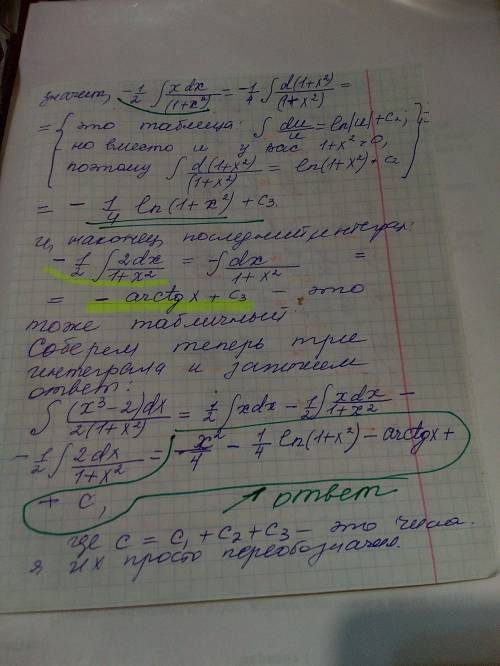 значит, -1/2 ∫ xdx/(1+x²) = -1/4 ∫ d(1+x²)/(1+x²) =
= { это таблица: ∫ du/u = ln|u| + C₂;
но вместо u у вас 1+x² > 0,
поэтому ∫ d(1+x²)/(1+x²) = ln(1+x²) + C₂ } =
= - 1/4 ln(1+x²) + C₃.
и, наконец последний интеграл:
-1/2 ∫ 2dx/1+x² = -∫ dx/1+x² =
= - arctgx + C₃ - это
тоже табличный.
Соберем теперь три
интеграла и запишем
ответ:
∫ (x³-2)dx/2(1+x²) = 1/2 ∫xdx - 1/2 ∫ xdx/1+x² -
- 1/2 ∫ 2dx/1+x² = x²/4 - 1/4 ln(1+x²) - arctgx +
+ C,
ответ
где C = C₁ + C₂ + C₃ - это числа.
я их просто переобозначил.